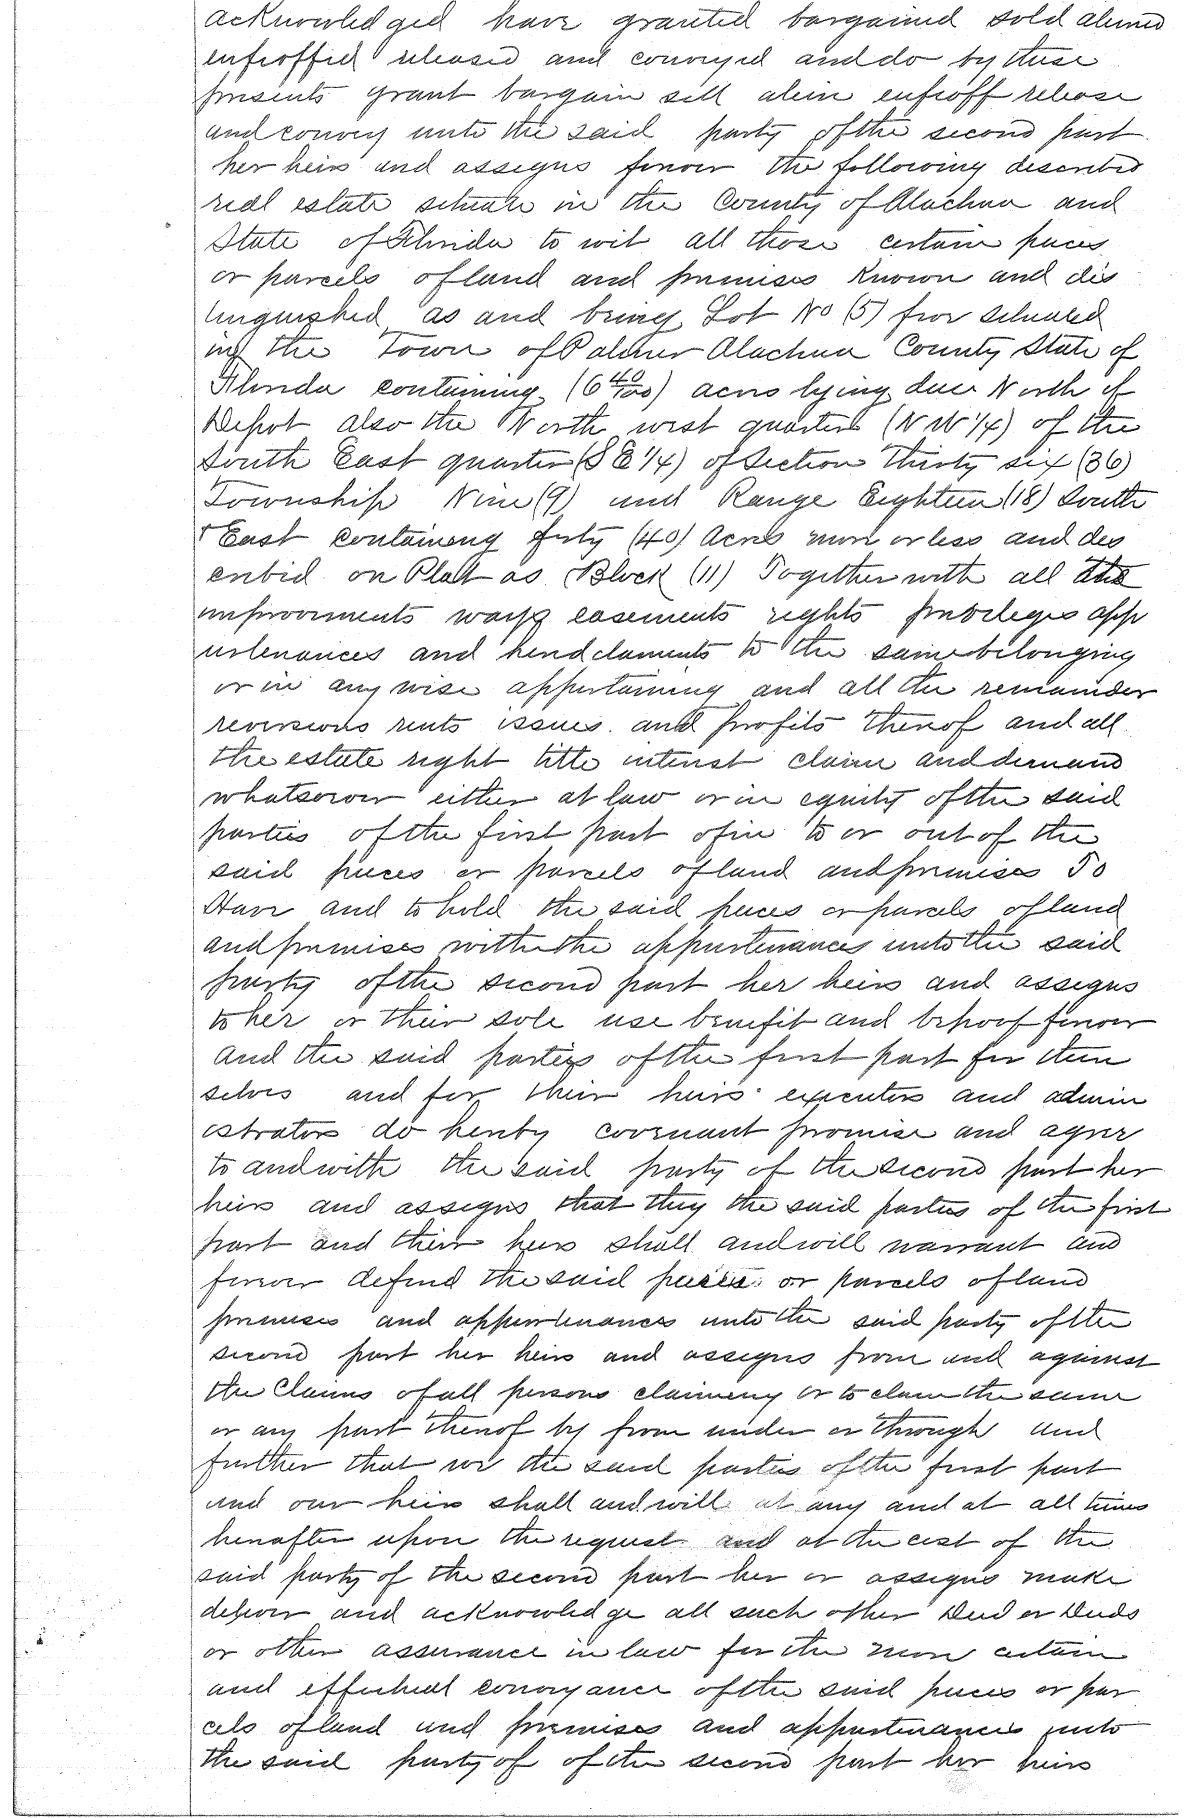 acknowledged have granted bargained sold aliened
enfeoffed released and conveyed and do by these
presents grant bargain sell alien enfeoff release
and convey unto the said party of the second part
her heirs and assigns forever the following described
real estate situate in the County of Alachua and
State of Florida to wit all those certain pieces
or parcels of land and premises known and dis
tinguished as and being Lot No (5) five situated
in the Town of Palmer Alachua County State of
Florida containing (6 40/100) acres lying due North of
Depot also the North west quarter (N W 1/4) of the
South East quarter (S E 1/4) of Section Thirty six (36)
Township Nine (9) and Range Eighteen (18) South
& East containing forty (40) Acres more or less and des
cribed on Plat as Block (11) Together with all the
improvements ways easements rights privileges app
urtenances and hereditaments to the same belonging
or in any wise appertaining and all the remainder
reversions rents issues and profits thereof and all
the estate right title interest claim and demand
whatsoever either at law or in equity of the said
parties of the first part of in to or out of the
said pieces or parcels of land and premises To
Have and to hold the said pieces or parcels of land
and premises with the appurtenances unto the said
party of the second part her heirs and assigns
to her or their sole use benefit and behoof forever
and the said parties of the first part for them
selves and for their heirs executors and admin
istrators do hereby covenant promise and agree
to and with the said party of the second part her
heirs and assigns that they the said parties of the first
part and their heirs shall and will warrant and
forever defend the said pieces or parcels of land
premises and appurtenances unto the said party of the
second part her heirs and assigns from and against
the Claims of all persons claiming or to claim the same
or any part thereof by from under or through and
further that we the said parties of the first part
and our heirs shall and will at any and at all times
hereafter upon the request and at the cost of the
said party of the second part her or assigns make
deliver and acknowledge all such other Deed or Deeds
or other assurance in law for the more certain
and effectual conveyance of the said pieces or par
cels of land and premises and appurtenances unto
the said party of of the second part her heirs